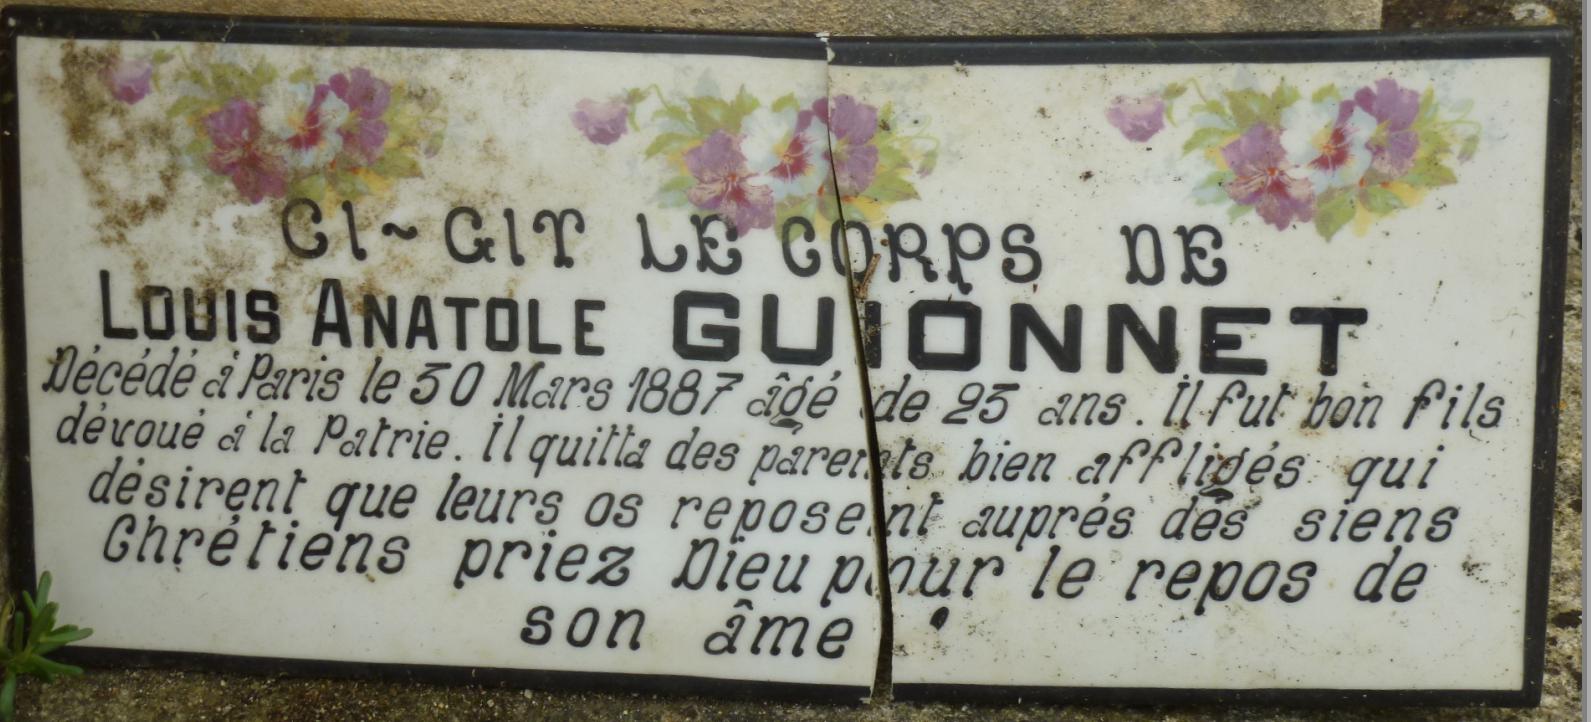 CI~GIT LE CORPS DE
LOUIS ANATOLE GUIONNET
Décédé à Paris le 30 Mars 1887 âgé de 23 ans. Il fut bon fils
dévoué à la Patrie. Il quitta des parents bien affligés qui
désirent que leurs os reposent auprés des siens
Chrétiens priez Dieu pour le repos de
son âme .